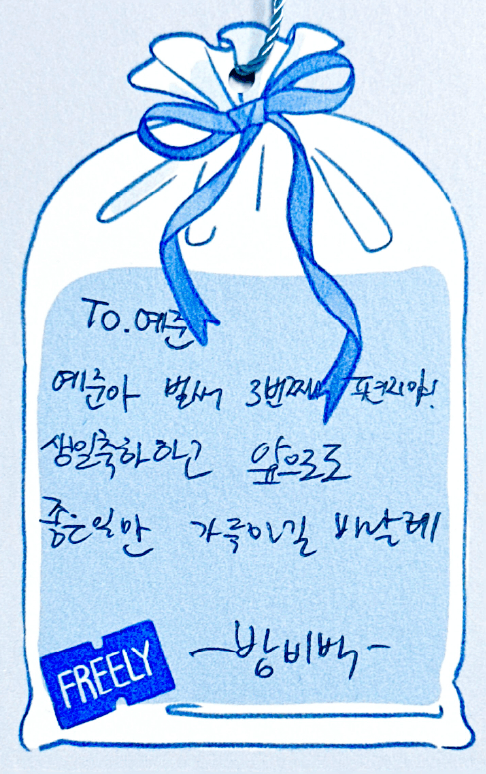 To.예준
예준아 벌써 3번째 편지야!
생일축하하고 앞으로도
좋은일만 가득이길 바랄레
-밤비벅-
FREELY